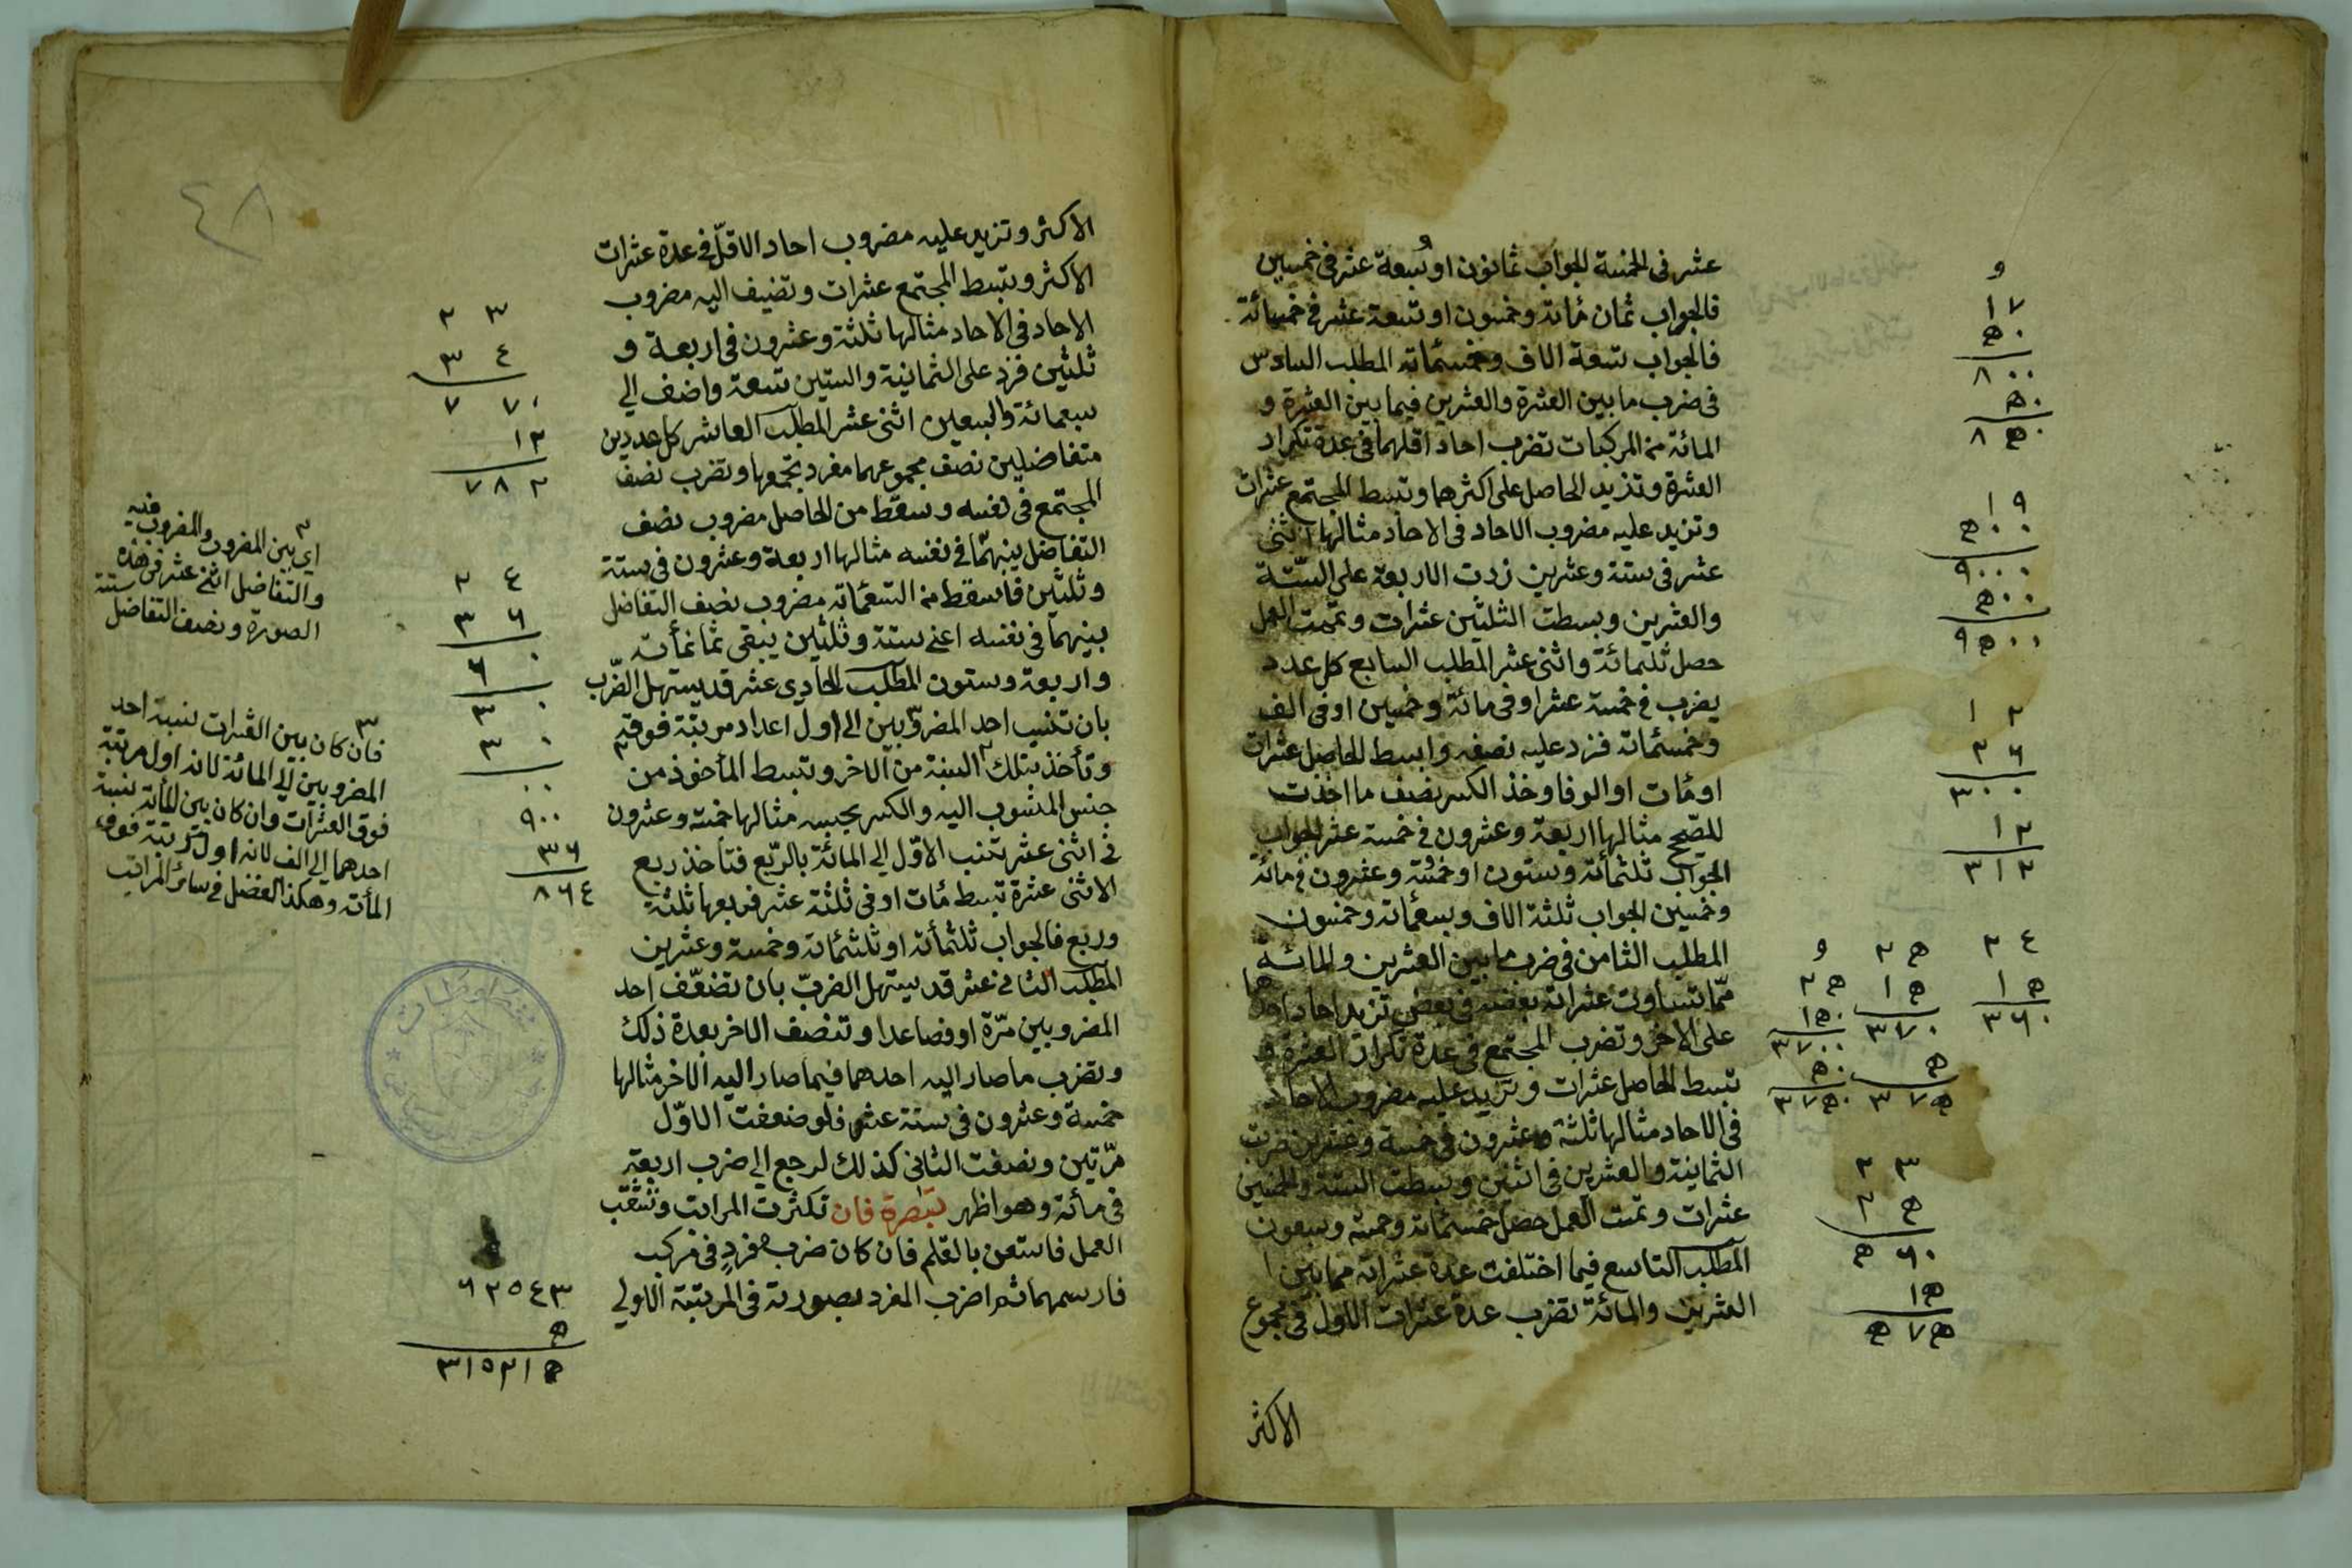 عشر فى الخمسة الجواب ثمانون او سبعة عشر فى خمسين
فالجواب ثمان مأته وخمسون او تسعة عشر فى خمسمائة
فالجواب تسعة الاف وخمسمأته المطلب السادس
فى ضرب ما بين العشرة والعشرين فيما بين العشرة و
المائة من المركبات تضرب احاد اقلهما فى عدة تكرار
العشرة وتزيد الحاصل على اكثرهما وتبسط المجتمع عشرات
وتزيد عليه مضروب الاحاد فى الاحاد مثالها اثنى
عشر فى ستة وعشرين زدت الاربعة على الستّة
والعشرين وبسطت الثلثين عشرات وتممت العمل
حصل ثلثمائة واثنى عشر المطلب السابع كل عدد
يضرب فى خمسة عشر او فى مائة وخمسين او فى الف
وخمسمأته فزد عليه نصفه وابسط الحاصل عشرات
او مأت او الوفا وخذ الكسر نصف ما اخذت
للصّحيح مثالها اربعة وعشرون فى خمسة عشر الجواب
الجواب ثلثمأته وستون او خمسة وعشرون فى مائة
وخمسين الجواب ثلثة الاف وسبعمأته وخمسون
المطلب الثامن فى ضرب ما بين العشرين والمائة
ممّا تساوت عشراته بعضه فى بعض تزيد احاد احدهما
على الاخر وتضرب المجتمع فى عدة تكرار العشرة و
تبسط الحاصل عشرات وتزيد عليه مضروب الاحاد
فى الاحاد مثالها ثلثة وعشرون فى خمسة وعشرين ضربت
الثمانية والعشرين فى اثنين وبسطت الستة والخمسين
عشرات وتممت العمل حصل خمسمأته وخمسة وسبعون
المطلب التاسع فيما اختلفت عدة عشراته مما بين
العشرين والمائة تضرب عدة عشرات الاول فى مجموع
الاكثر
و
١٧
٥٠
٨٠٠
٥٠
٨٥٠
١٩
٥٠٠
٩٠٠٠
٥٠٠
٩٥٠٠
١٢
٢٦
٣٠٠
١٢
٣١٢
٢٤
١٥
٣٦٠
٢٥
١٥
٣٧٠
٥
٣٧٥
و
٢٥
١٥٠
٣٧٠٠
٥٠
٣٧٥٠
٢٣
٢٥
٥٦٠
١٥
٥٧٥
٤٨
الاكثر وتزيد عليه مضروب احاد الاقلّ فى عدة عشرات
الاكثر وتبسط المجتمع عشرات وتضيف اليه مضروب
الاحاد فى الاحاد مثالها ثلثة وعشرون فى اربعة و
ثلثين فزد على الثمانية والستين تسعة واضف الى
سبعمائة والسبعين اثنى عشر المطلب العاشر كل عددين
متفاضلين نصف مجموعهما مفرد تجمعها وتضرب نصف
المجتمع فى نفسه وتسقط من الحاصل مضروب نصف
التفاضل بينهما فى نفسه مثالها اربعة وعشرون فى ستة
وثلثين فاسقط من التسعمأته مضروب نصف التفاضل
بينهما فى نفسه اعنى ستة وثلثين يبقى ثمانمأته
واربعة وستون المطلب الحادى عشر قد يستهل الضّرب
بان تنسب احد المضروبين الى اول اعداد مرتبة فوقه
وتأخذ بتلك النسبة من الاخر وتبسط المأخوذ من
جنس المنسوب اليه والكسر بحسبه مثالها خمسة وعشرون
فى اثنى عشر تنسب الاوّل الى المائة بالرّبع فتأخذ ربع
الاثنى عشرة تبسط مأت او فى ثلثة عشر فربعها ثلثة
وربع فالجواب ثلثمأته او ثلثمأته وخمسة وعشرين
المطلب الثانى عشر قد يستهل الضرب بان تضعّف احد
المضروبين مرّة او فصاعدا وتنصف الاخر بعدة ذلك
وتضرب ما صار اليه احدهما فيما صار اليه الاخر مثالها
خمسة وعشرون فى ستة عشر فلو ضعفت الاوّل
مرّتين ونصفت الثانى كذلك لرجع الى ضرب اربعة
فى مأته وهو اظهر تبصرة فان تكثرت المراتب وتشعّب
العمل فاستعن بالقلم فان كان ضرب مفرد فى مركب
فارسمهما ثم اضرب المفرد بصورته فى المرتبة الاولى
٢٣
٣٤
٧٧٠
١٢
٧٨٢
٢٤
٣٦
٦٠
٣٠
٣٠
٠٠
٩٠٠
٣٦
٨٦٤
٦٢٥٤٣
٥
٣١٥٢١٥
٢
اى بين المضروب والمضروب فيه
والتفاضل اثنى عشر فى هذه
الصورة ونصف التفاضل ستة
٣
فان كان بين العشرات نسبة احد
المضروبين الى المائة لانه اول مرتبة
فوق العشرات وان كان بين المأته نسبة
احدهما الى الف لانه اول مرتبة فوق
المأته وهكذا الفضل فى سائر المراتب